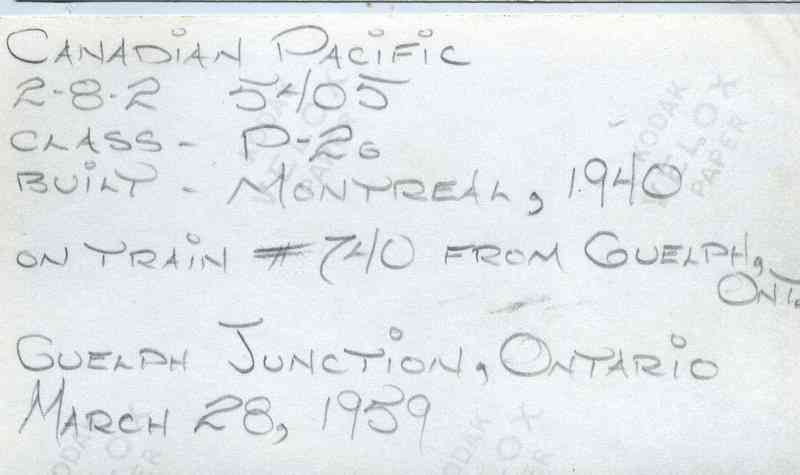 CANADIAN PACIFIC
2-8-2 5405
CLASS - P-2G
BUILT - MONTREAL, 1940
ON TRAIN #740 FROM GUELPH,
ONT.
GUELPH JUNCTION, ONTARIO
MARCH 28, 1959
KODAK
VELOX
PAPER